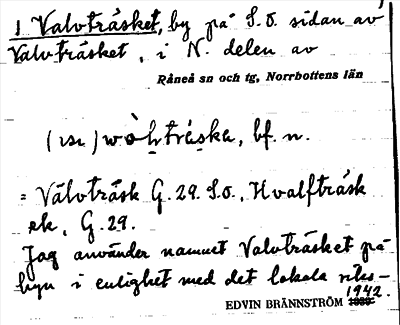 1 Valvträsket, by på S.Ö. sidan av
Valvträsket, i N. delen av
Råneå sn och tg, Norrbottens län
bf. n.
= Välvträsk G. 29. S.Ö., Hvalfträsk
ek, G. 29.
Jag använder namnet Valvträsket på
byn i enlighet med det lokala riks-
1942.
EDVIN BRÄNNSTRÖM 1939.